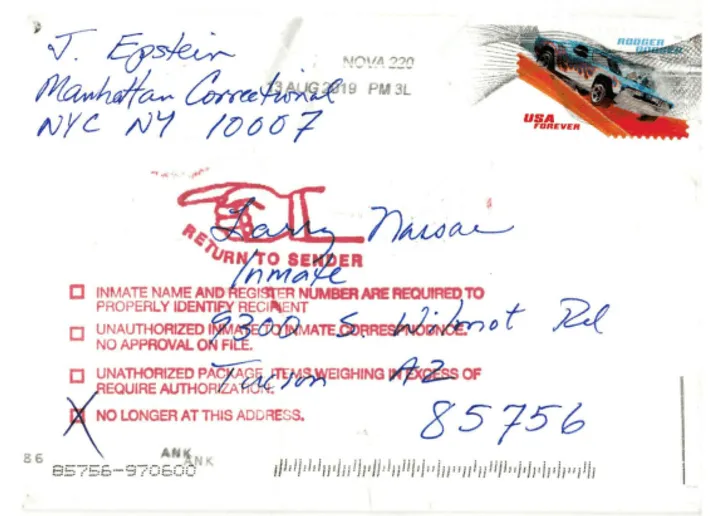 J. Epstein
Manhattan Correctional
NYC NY 10007
NOVA 220
13 AUG 2019 PM 3L
RODGER
USA
FOREVER
Larry Nassar
RETURN TO SENDER
Inmate
INMATE NAME AND REGISTER NUMBER ARE REQUIRED TO
PROPERLY IDENTIFY RECIPIENT
9300 S. Wilmot Rd
UNAUTHORIZED INMATE TO INMATE CORRESPONDNCE.
NO APPROVAL ON FILE.
Tucson AZ
UNATHORIZED PACKAGE, ITEMS WEIGHING IN EXCESS OF
REQUIRE AUTHORIZATION.
85756
X NO LONGER AT THIS ADDRESS.
86
ANK
ANK
85756-970600